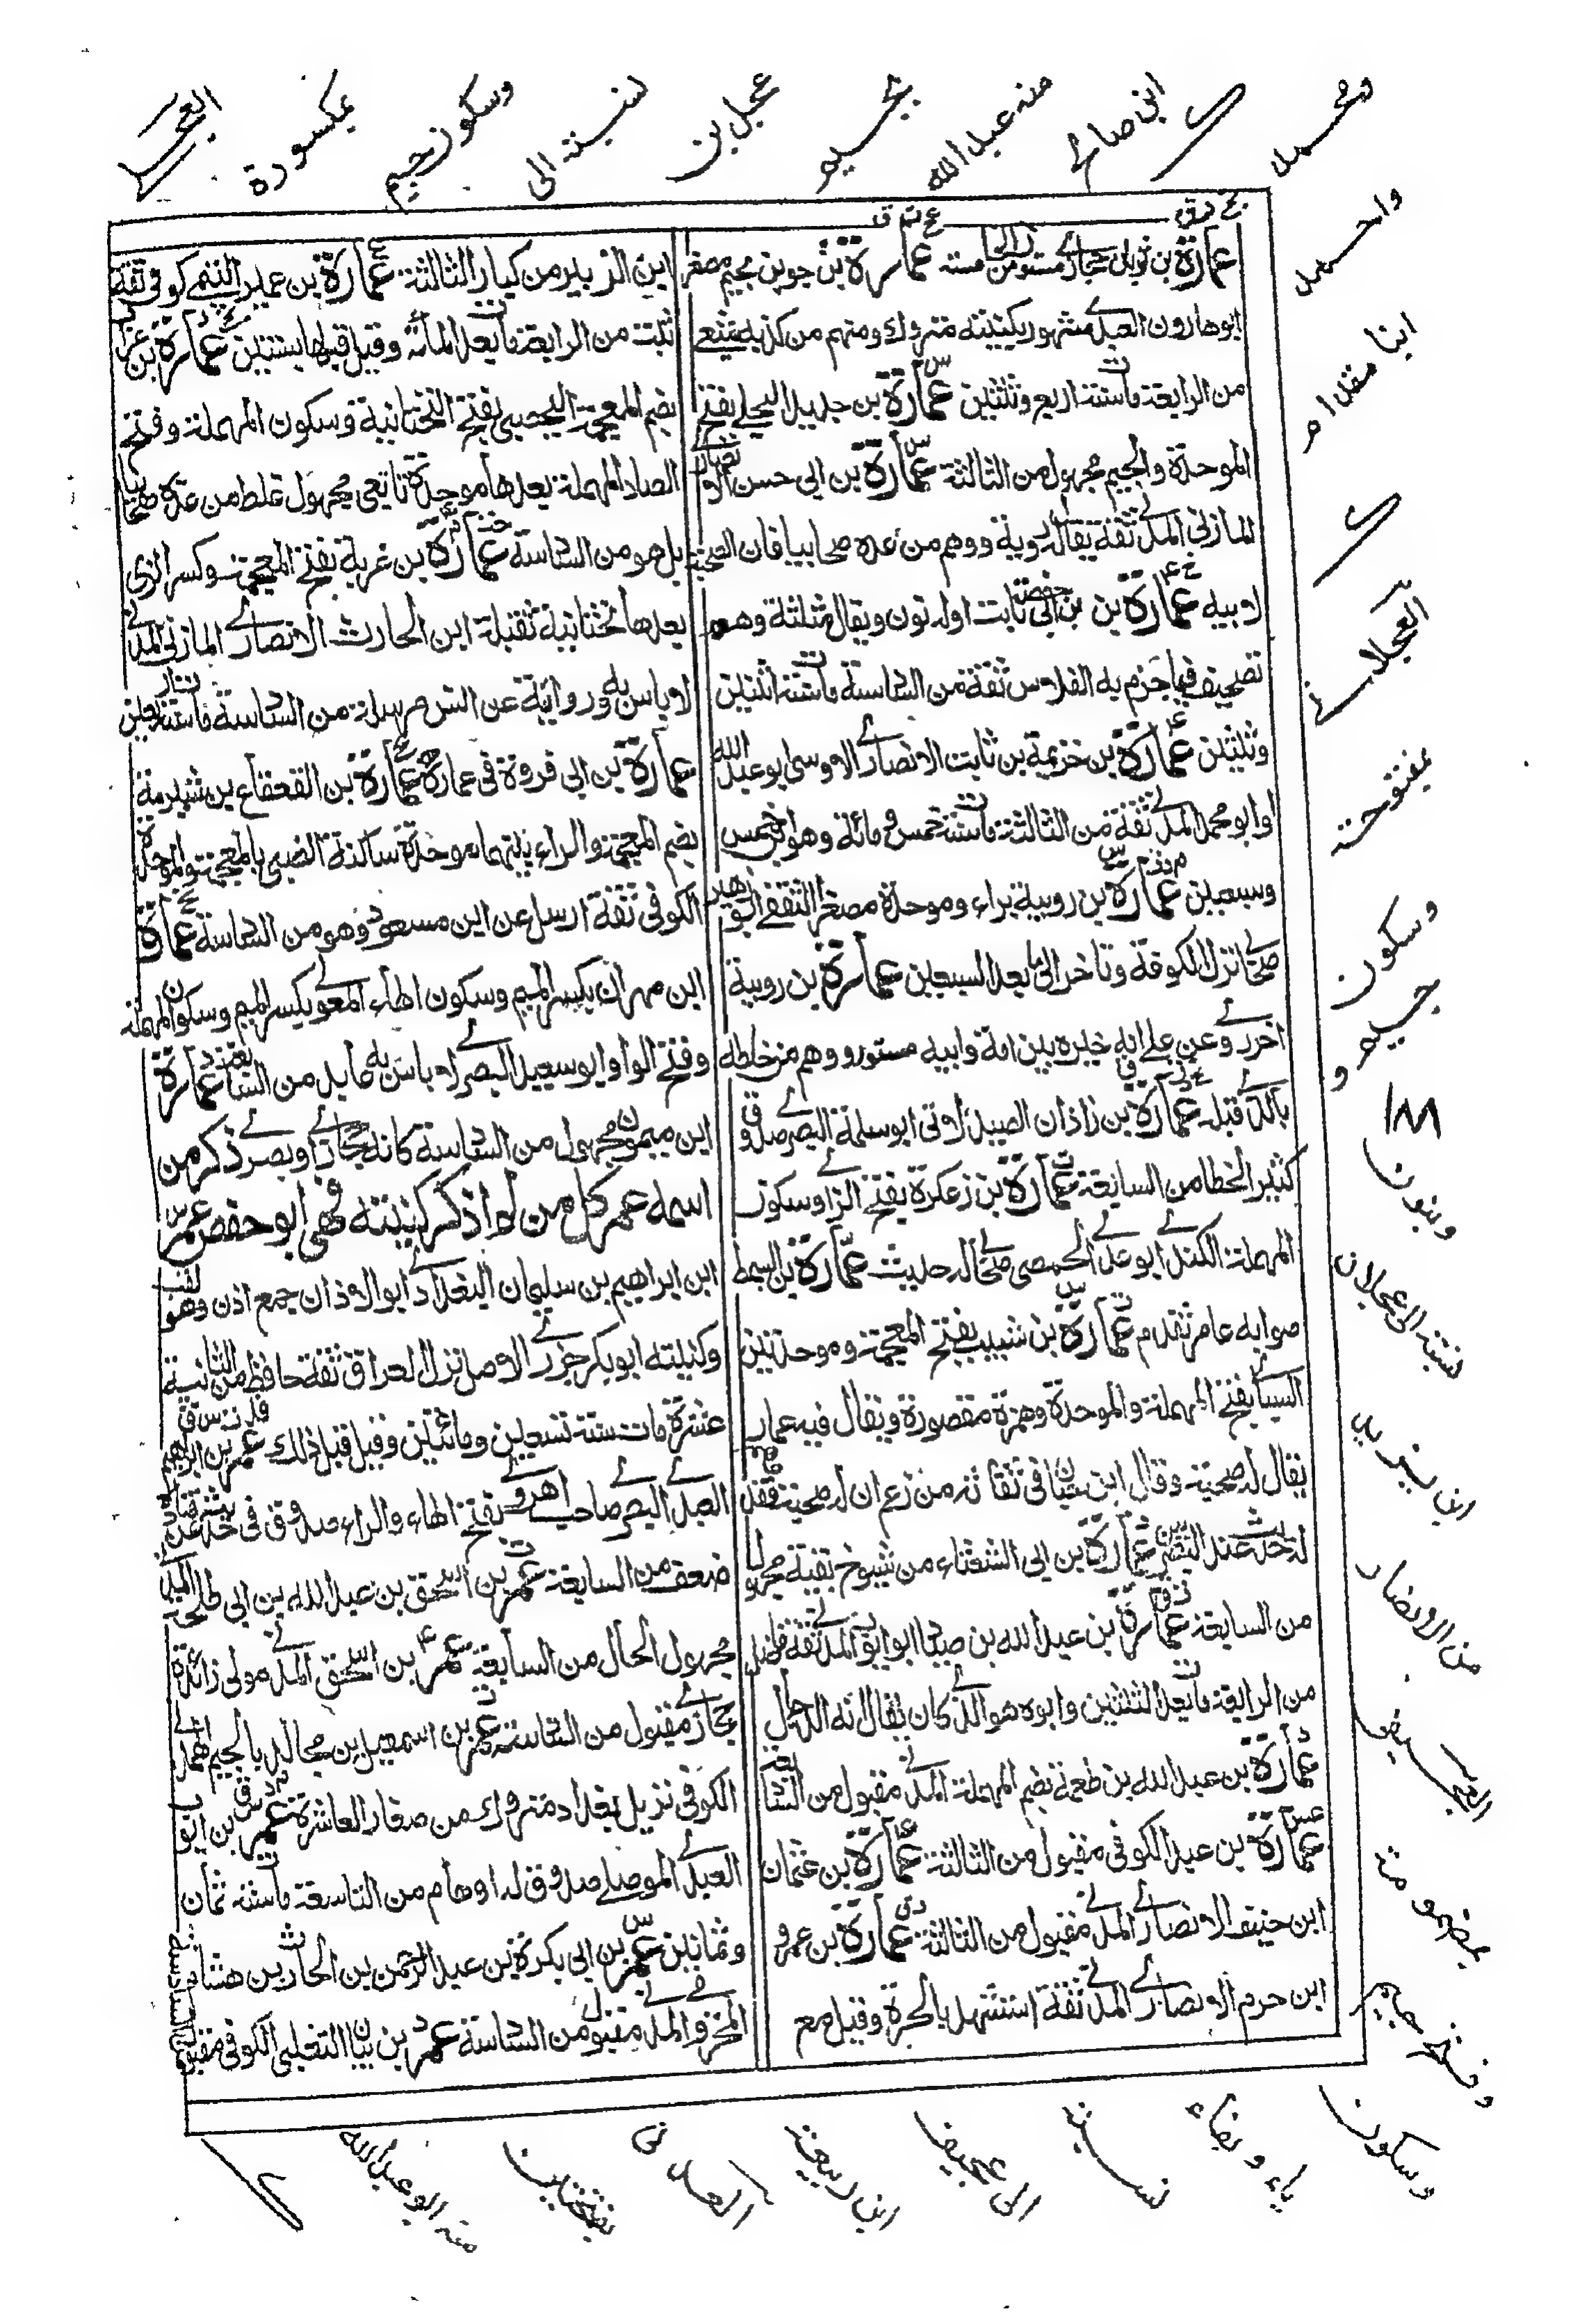 عمارة بن ثوبان حجازي مستور من الخامسة عمارة بن جوين بجيم مصغر
ابو هارون العبدي مشهور بكنيته متروك ومنهم من كذبه شيعي
من الرابعة مات سنة اربع وثلثين عمارة بن حديد البجلي بفتح
الموحدة والجيم مجهول من الثالثة عمارة بن ابي حسن الانصاري
المازني المدني ثقة يقال له روية ووهم من عده صحابيا فان الصحبة
لابيه عمارة بن ابي حفصة ثابت اوله نون ويقال مثلثة وهو
تصحيف فيما جزم به الفلاس ثقة من السادسة مات سنة اثنتين
وثلثين عمارة بن خزيمة بن ثابت الانصاري الاوسي ابو عبد الله
او ابو محمد المدني ثقة من الثالثة مات سنة خمس ومائة وهو ابن خمس
وسبعين عمارة بن رويبة براء وموحدة مصغرا الثقفي ابو زهير
صحابي نزل الكوفة وتاخر الى بعد السبعين عمارة بن رويبة
اخر روى عن علي انه خيره بين امه وابيه مستور ووهم من خلطه
بالذي قبله عمارة بن زاذان الصيدلاني ابو سلمة البصري صدوق
كثير الخطا من السابعة عمارة بن زعكرة بفتح الزا وسكون
المهملة الكندي ابو عدي الحمصي صحابي له حديث عمارة بن السمط
صوابه عامر تقدم عمارة بن شبيب بفتح المعجمة وموحدتين
السبائي بفتح المهملة والموحدة وهمزة مقصورة ويقال فيه عمار
يقال له صحبة وقال ابن حبان في ثقاته من زعم ان له صحبة فقد وهم
له حديث عند النسائي عمارة بن ابي الشعثاء من شيوخ بقية مجهول
من السابعة عمارة بن عبد الله بن صياد ابو ايوب المدني ثقة فاضل
من الرابعة مات بعد الثلثين وابوه هو الذي كان يقال انه الدجال
عمارة بن عبد الله بن طعمة بضم المهملة المدني مقبول من السابعة
عمارة بن عبد الكوفي مقبول من الثالثة عمارة بن عثمان
ابن حنيف الانصاري المدني مقبول من الثالثة عمارة بن عمرو
ابن حزم الانصاري المدني ثقة استشهد بالحرة وقيل مع
ابن الزبير من كبار الثالثة عمارة بن عمير التيمي كوفي ثقة
ثبت من الرابعة مات بعد المائة وقيل قبلها بسنتين عمارة بن غراب
بضم المعجمة اليحصبي بفتح التحتانية وسكون المهملة وفتح
الصاد المهملة بعدها موحدة تابعي مجهول غلط من عده صحابيا
بل هو من السادسة عمارة بن غزية بفتح المعجمة وكسر الزاي
بعدها تحتانية ثقيلة ابن الحارث الانصاري المازني المدني
لا باس به وروايته عن انس مرسلة من السادسة مات سنة اربعين
عمارة بن ابي فروة في عمار عمارة بن القعقاع بن شبرمة
بضم المعجمة والراء بينهما موحدة ساكنة الضبي بالمعجمة والموحدة
الكوفي ثقة ارسل عن ابن مسعود وهو من السادسة عمارة
ابن مهران بكسر الميم وسكون الهاء المعولي بكسر الميم وسكون المهملة
وفتح الواو ابو سعيد البصري لا باس به عابد من السابعة عمارة
ابن ميمون مجهول من السادسة كانه حجازي او بصري ذكر من
اسمه عمر كل من لم اذكر كنيته فهي ابو حفص عمر
ابن ابراهيم بن سليمان البغدادي ابو الاذان جمع اذن وهو لقب
وكنيته ابو بكر جزري الاصل نزل العراق ثقة حافظ من الثانية
عشرة مات سنة تسعين ومائتين وقيل قبل ذلك عمر بن ابراهيم
العبدي البصري صاحب الهروي بفتح الهاء والراء صدوق في حديثه عن قتادة
ضعف من السابعة عمر بن اسحق بن عبد الله بن ابي طلحة المدني
مجهول الحال من السابعة عمر بن اسحق المدني مولى زائدة
حجازي مقبول من السادسة عمر بن اسمعيل بن مجالد بالجيم الهمداني
الكوفي نزيل بغداد متروك من صغار العاشرة عمر بن ايوب
العبدي الموصلي صدوق له اوهام من التاسعة مات سنة ثمان
وثمانين عمر بن ابي بكر بن عبد الرحمن بن الحارث بن هشام
المخزومي المدني مقبول من السادسة عمر بن بيان التغلبي الكوفي مقبول
من السادسة
ومحمد
واحمد
ابنا مقدام
العجلاني
مفتوحة
وسكون
جيم و
١٨٨
وبنون
نسبة الى عجلان
من الانصار
العجيفي
بمضمومة
وفتح جيم
وسكون
ياء وبفاء
نسبة
الى عجيف
ابن ربيعة
منه ابو عبد الله
العجلي
بمكسورة
وسكون جيم
نسبة الى
عجل بن
لجيم
منه عبد الله
ابن صالح